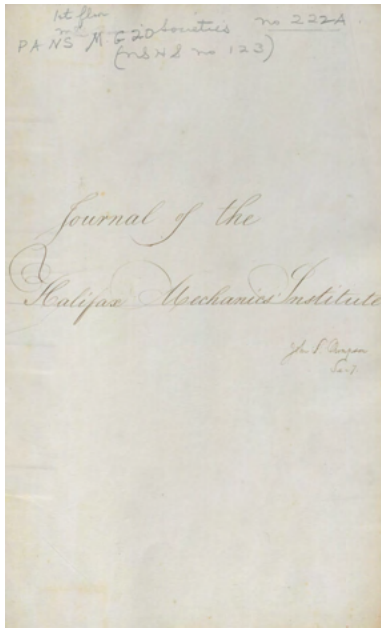 1st floor
PANS MG 20 Societies no 222A
(NSHS no 123)
Journal of the
Halifax Mechanics' Institute